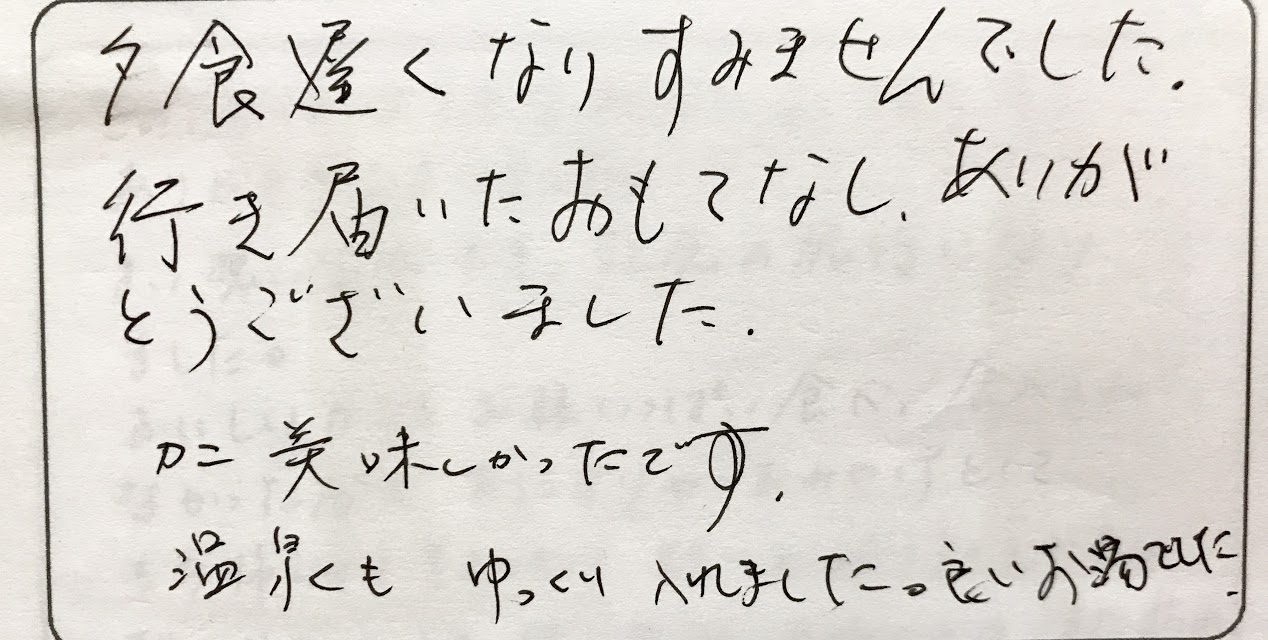 夕食遅くなりすみませんでした.
行き届いたおもてなし、ありが
とうございました.
カニ美味しかったです.
温泉くもゆっくり入れました。良いお湯でした.